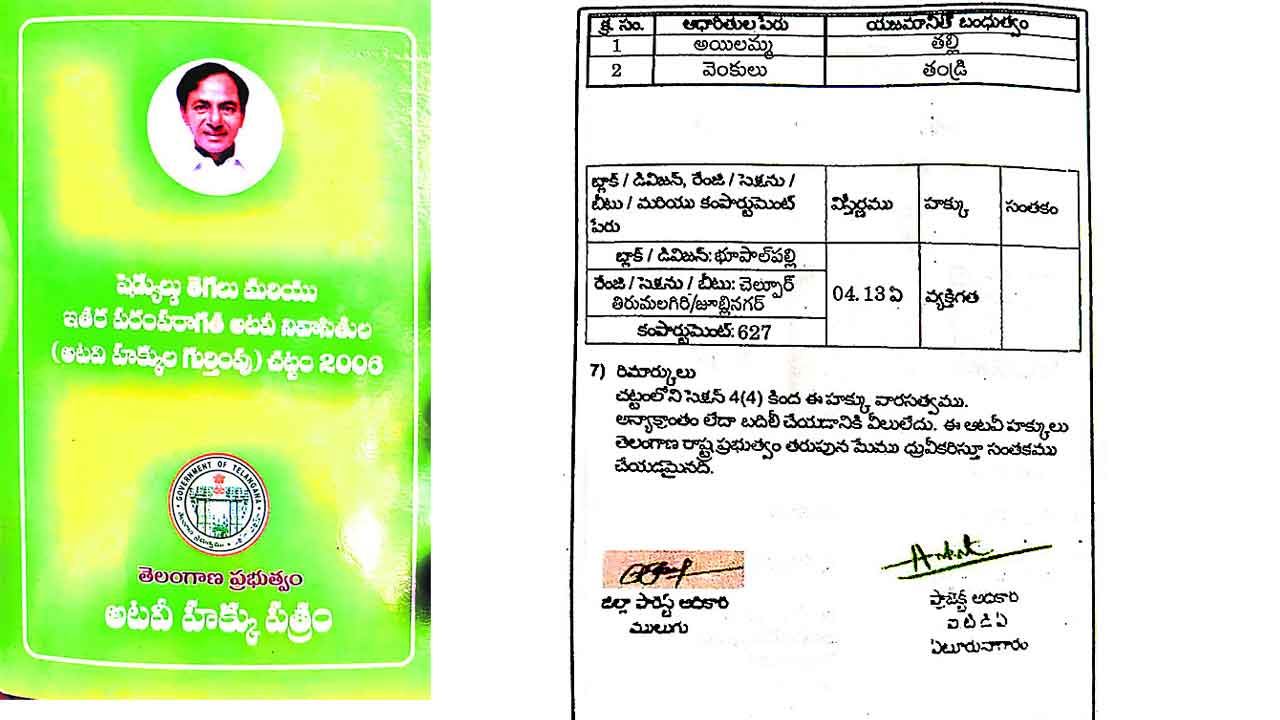 షెడ్యుల్డు తెగలు మరియు
ఇతర పరంపరాగత అటవీ నివాసితుల
(అటవి హక్కుల గుర్తింపు) చట్టం 2006
GOVERNMENT OF TELANGANA
తెలంగాణ ప్రభుత్వం
అటవీ హక్కు పత్రం
క్ర. సం. ఆధారితుల పేరు యజమానితో బంధుత్వం
1 అయిలమ్మ తల్లి
2 వెంకులు తండ్రి
బ్లాక్ / డివిజన్, రేంజి / సెక్షను /
బీటు / మరియు కంపార్టుమెంట్
పేరు
విస్తీర్ణము
హక్కు
సంతకం
బ్లాక్ / డివిజన్: భూపాల్‌పల్లి
రేంజి / సెక్షను / బీటు: చెల్పూర్
తిరుమలగిరి/జూబ్లినగర్
కంపార్టుమెంట్: 627
04.13 ఏ
వ్యక్తిగత
7) రిమార్కులు
చట్టంలోని సెక్షన్ 4(4) కింద ఈ హక్కు వారసత్వము.
అన్యాక్రాంతం లేదా బదిలీ చేయడానికి వీలులేదు. ఈ అటవీ హక్కులు
తెలంగాణ రాష్ట్ర ప్రభుత్వం తరుపున మేము ధ్రువీకరిస్తూ సంతకము
చేయడమైనది.
జిల్లా ఫారెస్ట్ అదికారి
ములుగు
ప్రాజెక్ట్ అదికారి
ఐ టి డి ఏ
ఏటూరునాగారం